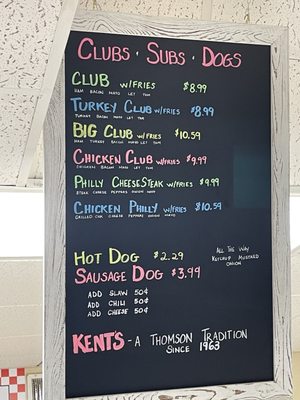 CLUBS · SUBS · DOGS
CLUB W/FRIES $8.99
HAM BACON MAYO LET TOM
TURKEY CLUB W/FRIES $8.99
TURKEY BACON MAYO LET TOM
BIG CLUB W/FRIES $10.59
HAM TURKEY BACON MAYO LET TOM
CHICKEN CLUB W/FRIES $9.99
CHICKEN BACON MAYO LET TOM
PHILLY CHEESESTEAK W/FRIES $9.99
STEAK CHEESE PEPPERS ONION MAYO
CHICKEN PHILLY W/FRIES $10.59
GRILLED CHK CHEESE PEPPERS ONION MAYO
HOT DOG $2.29
SAUSAGE DOG $3.99
ALL THE WAY
KETCHUP MUSTARD
ONION
ADD SLAW 50¢
ADD CHILI 50¢
ADD CHEESE 50¢
KENT'S - A THOMSON TRADITION
SINCE 1963